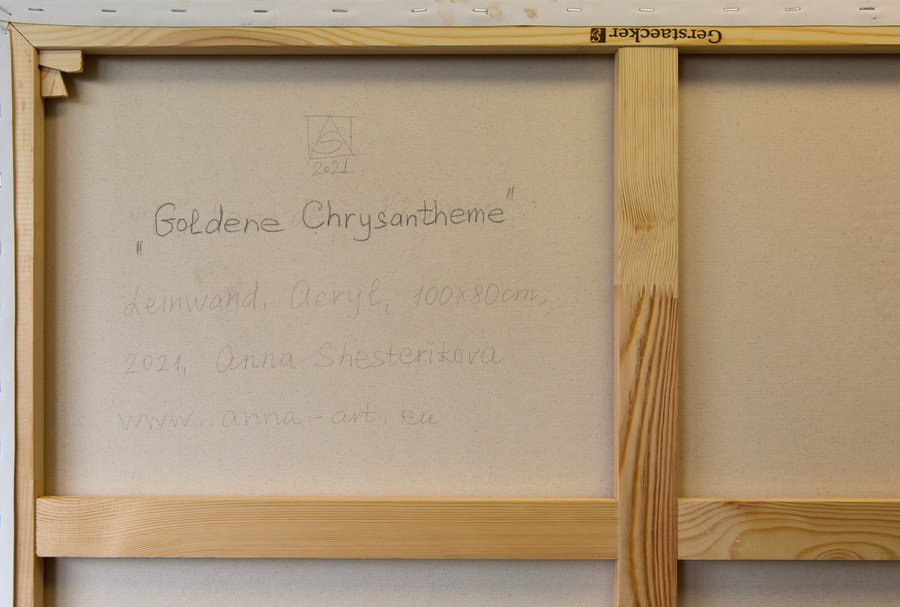 Gerstaecker
2021
„Goldene Chrysantheme"
Leinwand, Acryl, 100x80cm,
2021, Anna Shesterikova
www.anna-art.eu